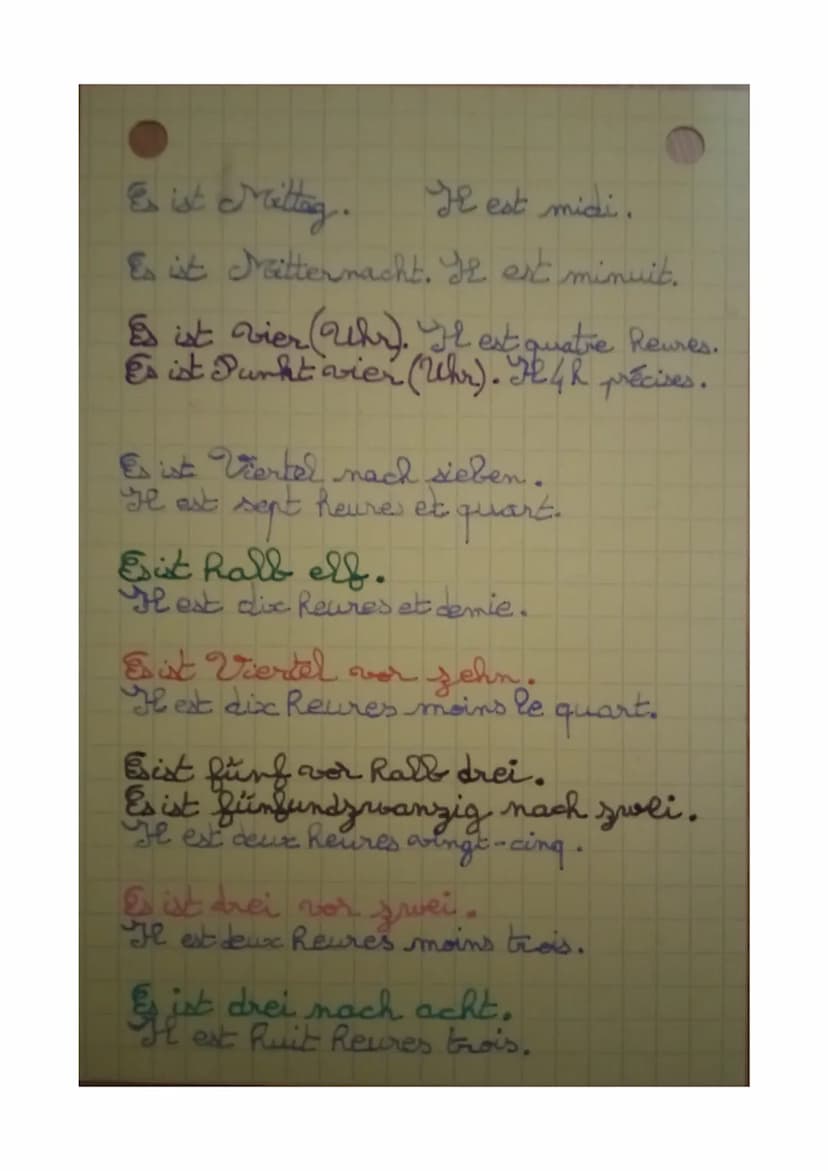 Es ist Mittag. Il est midi.
Es ist Mitternacht. Il est minuit.
Es ist vier (Uhr). Il est quatre heures.
Es ist Punkt vier (Uhr). Il 4h précises.
Es ist Viertel nach sieben.
Il est sept heures et quart.
Es ist halb elf.
Il est dix heures et demie.
Es ist Viertel vor zehn.
Il est dix heures moins le quart.
Es ist fünf vor halb drei.
Es ist fünfundzwanzig nach zwei.
Il est deux heures vingt-cinq.
Es ist drei vor zwei.
Il est deux heures moins trois.
Es ist drei nach acht.
Il est huit heures trois.